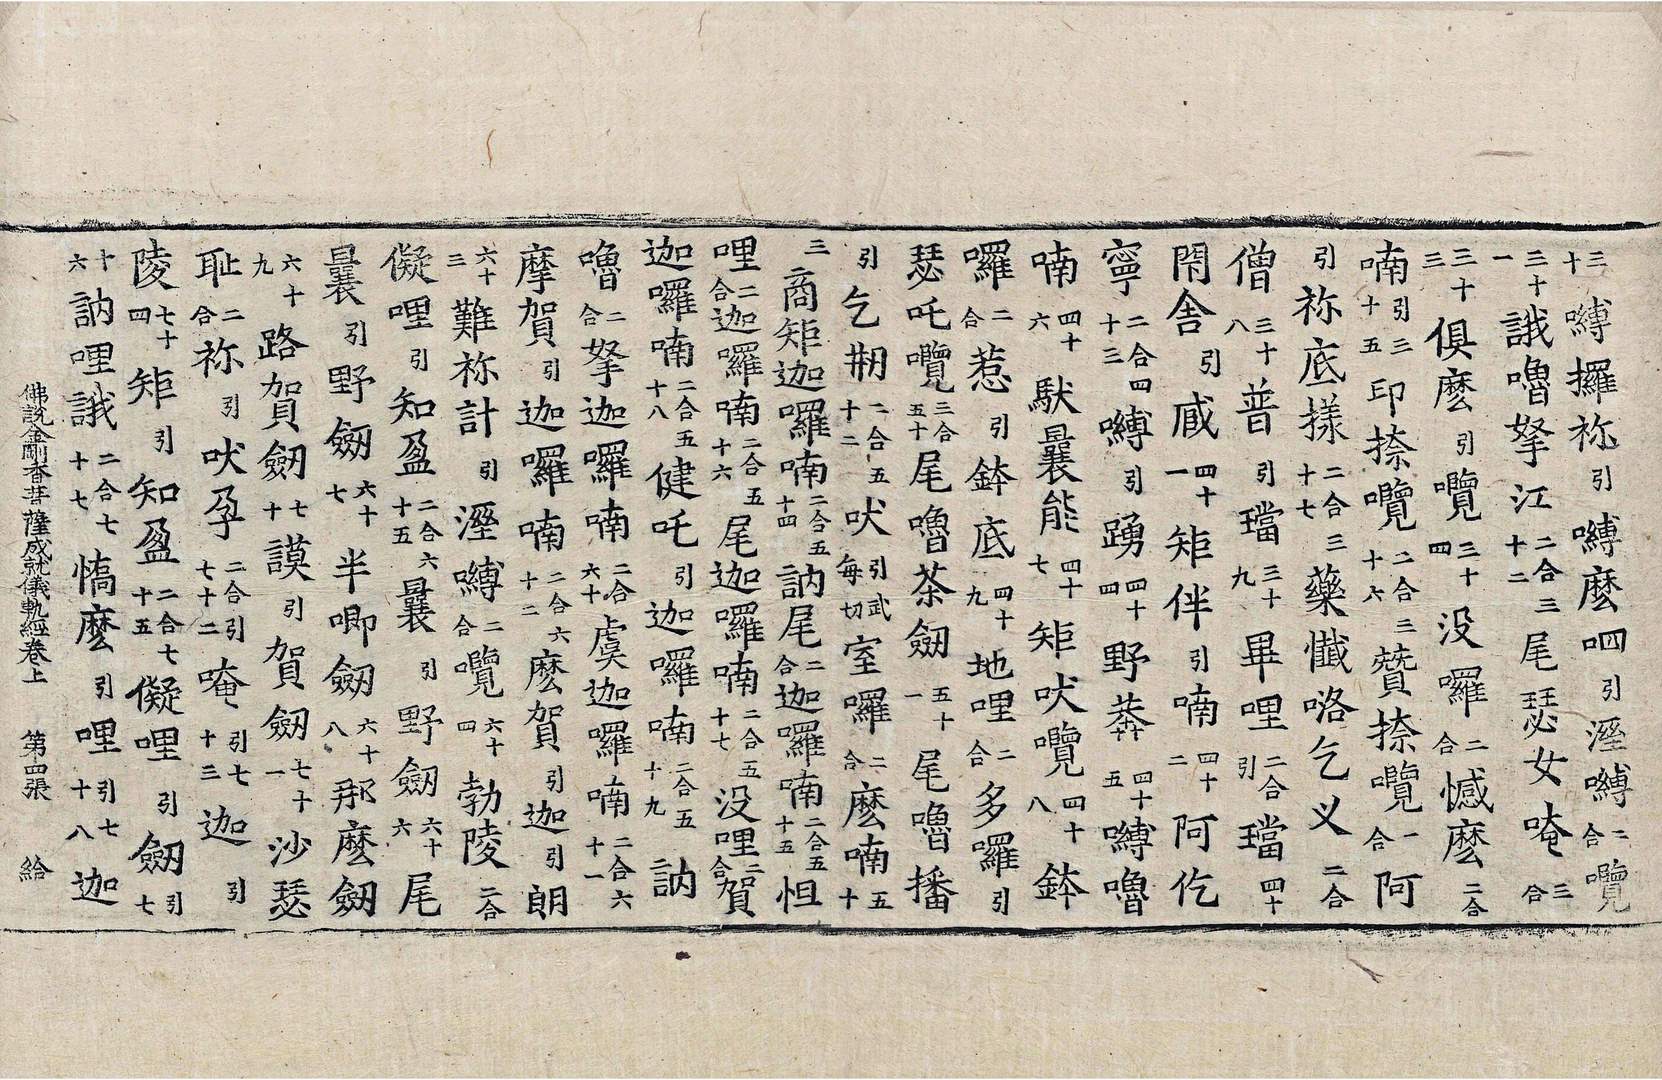 三十嚩攞祢引嚩麼呬引溼嚩二合嚂
三十一誐嚕拏江二合三十二尾瑟女唵三合
三十三俱麼引嚂三十四没囉二合憾麼二合
喃引三十五印捺嚂二合三十六贊捺嚂二合阿
引祢底㨾二合三十七藥懺咯乞义二合
僧三十八普引璫三十九畢哩二合引璫四十
閇舍引㾕四十一矩伴引喃四十二阿仡
寧二合四十三嚩引踴四十四野莾四十五嚩嚕
喃四十六䭾曩能四十七矩吠嚂四十八鉢
囉二合惹引鉢底四十九地哩二合多囉引
瑟吒嚂三合五十尾嚕茶劒五十一尾嚕播
引乞朔二合五十二吠引武每切室囉二合麼喃五十
三商矩迦囉喃二合五十四訥尾二合迦囉喃二合五十五怛
哩二合迦囉喃二合五十六尾迦囉喃二合五十七没哩二合賀
迦囉喃二合五十八健吒引迦囉喃二合五十九訥
嚕二合拏迦囉喃二合六十虞迦囉喃二合六十一
摩賀引迦囉喃二合六十二麽賀引迦引朗
六十三難祢計引溼嚩二合嚂六十四勃陵二合
儗哩引知盈二合六十五曩引野劒六十六尾
曩引野劒六十七半唧劒六十八那麼劒
六十九路賀劒七十謨引賀劒七十一沙瑟
耻二合祢引吠孕二合引七十二唵引七十三迦引
陵七十四矩引知盈二合七十五儗哩引劒引七
十六訥哩誐二合七十七憍麼引哩引七十八迦
佛說金剛香菩薩成就儀軌經卷上 第四張 給